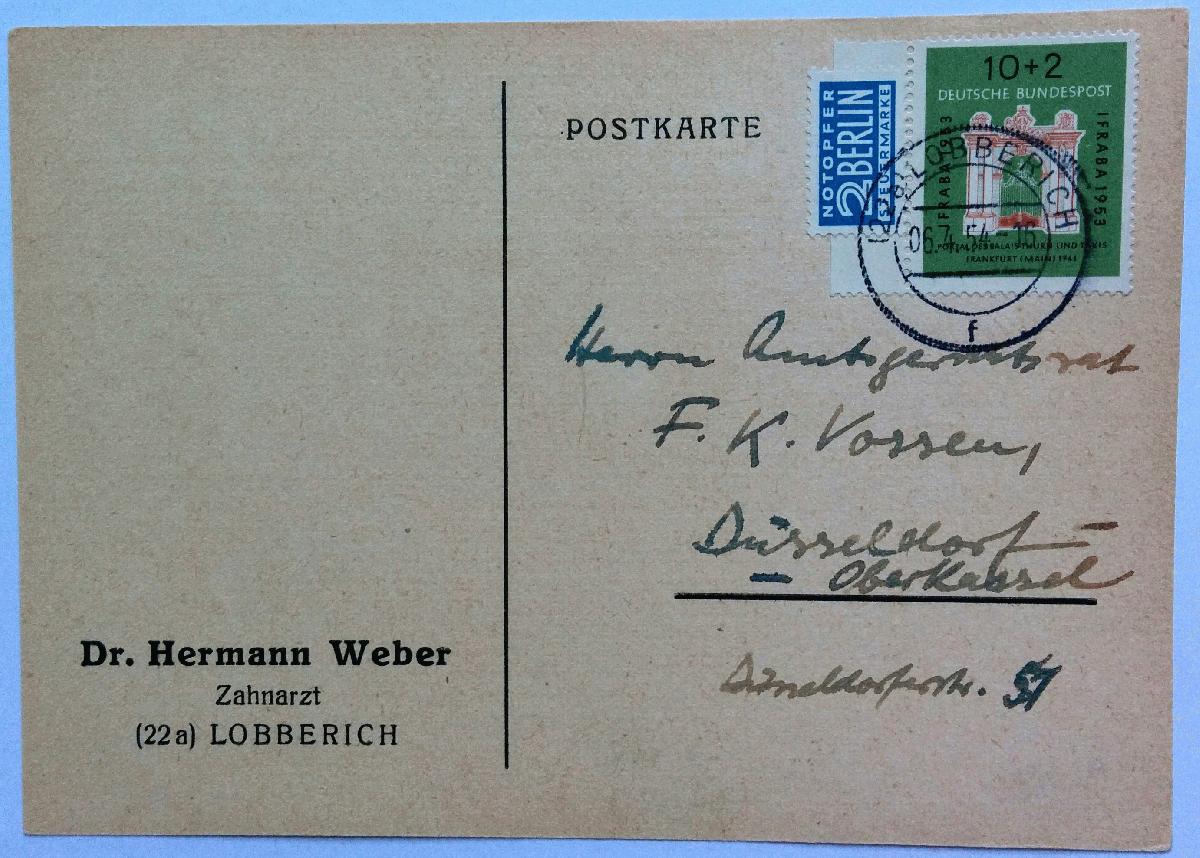 POSTKARTE
NOTOPFER
2 BERLIN
STEUERMARKE
10+2
DEUTSCHE BUNDESPOST
IFRABA 1953
IFRABA 1953
PORTAL DES PALAIS THURN UND TAXIS
FRANKFURT (MAIN) 1941
(22a) LOBBERICH
06.7.54-16
f
Herrn Amtsgerichtsrat
F. K. Vossen,
Düsseldorf-
- Oberkassel
Düsseldorferstr.
Dr. Hermann Weber
Zahnarzt
(22a) LOBBERICH